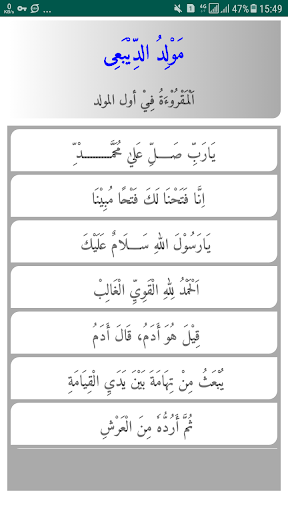 0 KB/s 4G 47% 15:49
مَوْلِدُ الدِّيْبَعِى
اَلْمَقْرُوْءَةُ فِيْ أول المولد
يَارَبِّ صَـــلِّ عَلَي مُحَمَّـــــــــــدْ
اِنَّا فَتَحْنَا لَكَ فَتْحًا مُبِيْنَا
يَارَسُوْلَ اللهِ سَـــلَامٌ عَلَيْكَ
اَلْحَمْدُ لِلهِ الْقَوِيِّ الْغَالِبْ
قِيْلَ هُوَ أَدَمُ، قَالَ أَدَمُ
يُبْعَثُ مِنْ تِهَامَةَ بَيْنَ يَدَيِ الْقِيَامَةِ
ثُمَّ أَرُدُّهُ مِنَ الْعَرْشِ